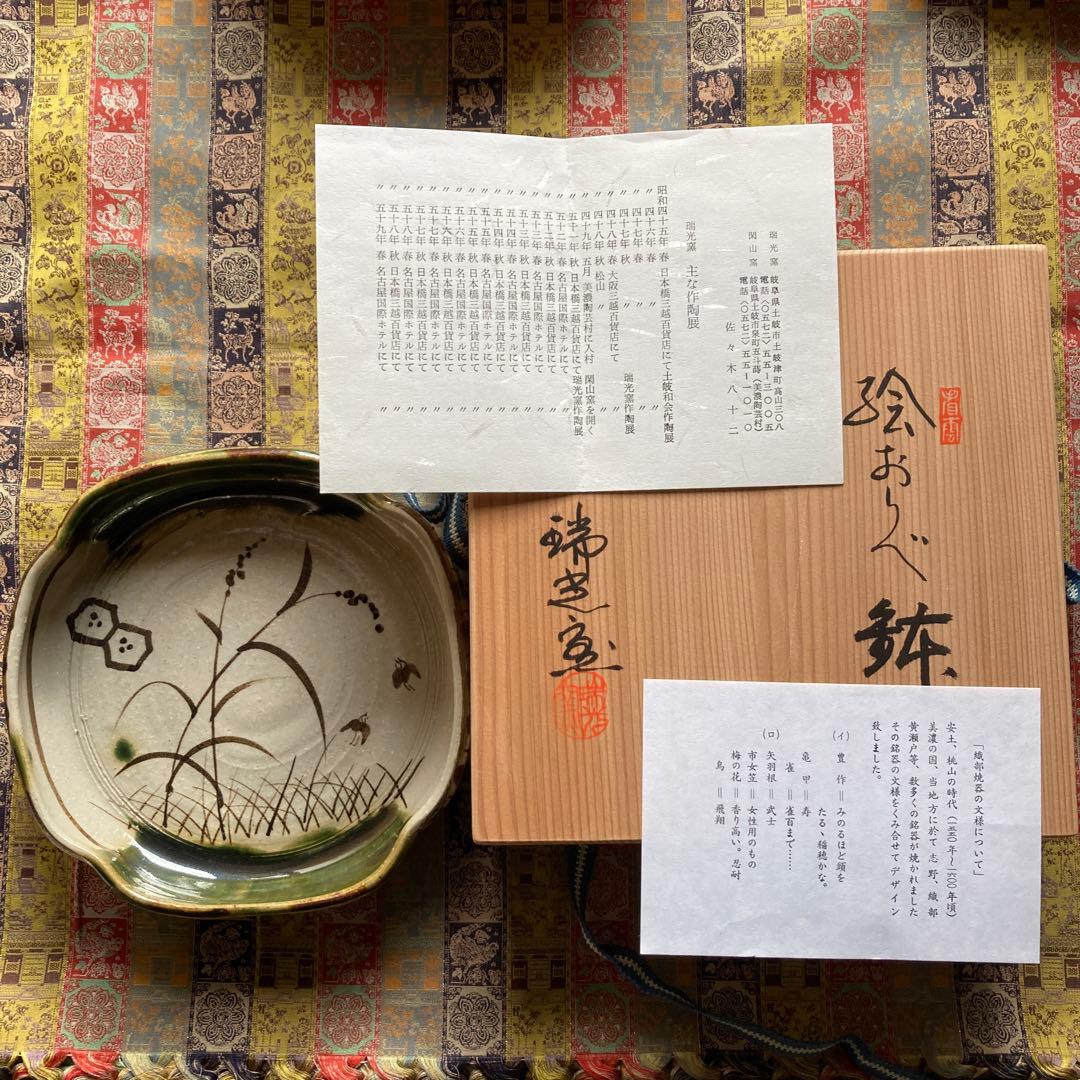 瑞光窯 岐阜県土岐市土岐津町高山三〇八
電話(〇五七二)五五ー三〇〇五
閑山窯 岐阜県土岐市泉町五斗蒔(美濃陶芸村)
電話(〇五七二)五五ー一〇一〇
佐々木八十二
瑞光窯 主な作陶展
昭和四十五年 春 日本橋三越百貨店にて土岐和会作陶展
〃 四十六年 春 〃
〃 四十七年 春
〃 四十七年 秋 〃 瑞光窯作陶展
〃 四十八年 春 大阪三越百貨店にて 〃
〃 四十八年 秋 松山 〃
〃 四十九年 五月 美濃陶芸村に入村 閑山窯を開く
〃 五十一年 秋 日本橋三越百貨店にて 瑞光窯作陶展
〃 五十二年 春 名古屋国際ホテルにて 〃
〃 五十二年 秋 日本橋三越百貨店にて 〃
〃 五十三年 春 名古屋国際ホテルにて 〃
〃 五十三年 秋 日本橋三越百貨店にて 〃
〃 五十四年 春 名古屋国際ホテルにて 〃
〃 五十四年 秋 日本橋三越百貨店にて 〃
〃 五十五年 春 名古屋国際ホテルにて 〃
〃 五十五年 秋 日本橋三越百貨店にて 〃
〃 五十六年 春 名古屋国際ホテルにて 〃
〃 五十六年 秋 日本橋三越百貨店にて 〃
〃 五十七年 春 名古屋国際ホテルにて 〃
〃 五十七年 秋 日本橋三越百貨店にて 〃
〃 五十八年 春 名古屋国際ホテルにて 〃
〃 五十八年 秋 日本橋三越百貨店にて 〃
〃 五十九年 春 名古屋国際ホテルにて 〃
絵おりべ 鉢
瑞光窯
「織部焼器の文様について」
安土、桃山の時代(一五五〇年〜一六〇〇年頃)
美濃の国、当地方に於て 志野、織部
黄瀬戸等、数多くの銘器が焼かれました
その銘器の文様をくみ合せてデザイン
致しました。
(イ) 豊作=みのるほど頭を
たるゝ稲穂かな。
亀甲=寿
雀=雀百まで……
(ロ) 矢羽根=武士
市女笠=女性用のもの
梅の花=香り高い。忍耐
鳥=飛翔